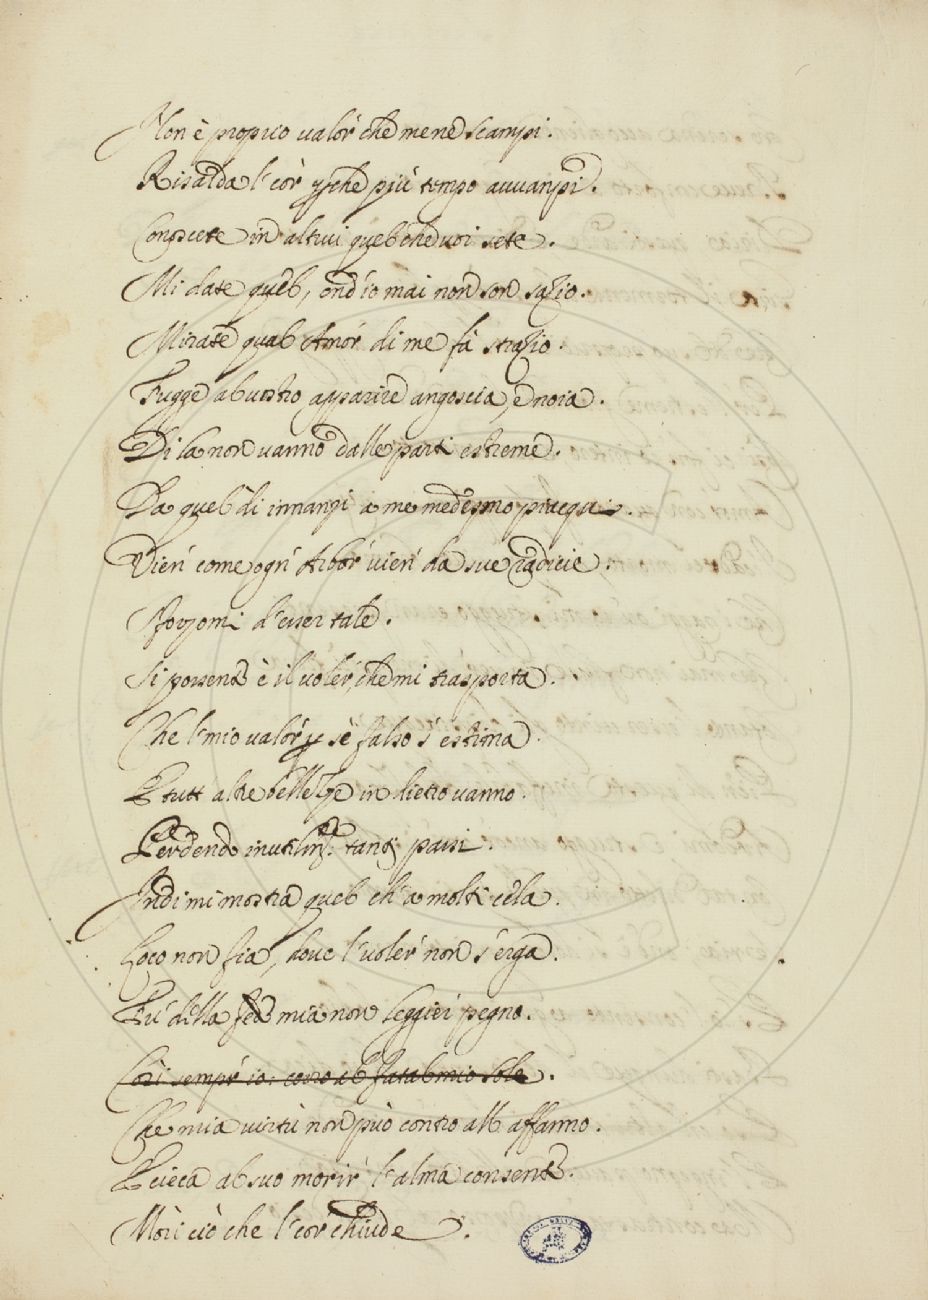 Non è proprio valor che mene scampi.
Risalda l'cor p che più tempo avvanpi.
Conoscete in altrui quel che voi sete.
Mi date quel, ond'io mai non son sazio.
Mirate qual Amor di me fà strazio.
Fugge al vostro apparire angoscia, e noia.
Di la non vanno dalle parti estreme.
Da quel di innanzi a me medesmo piacqui.
Vien come ogni Arbor vien da sue radicie.
Sforzomi d'esser tale.
Si possente è il voler che mi trasporta.
Che l'mio valor p sè falso s'estima.
E tutt altre bellezze in dietro vanno.
Perdendo inutilm.te tanti passi.
Indi mi mostra quel ch'a molti cela.
Loco non fia, dove l'voler non s'erga.
Fù della fede mia non leggier pegno.
Così sempr'io: corro al fatal mio sole.
Che mia virtù non può contro all affanno.
E cieca al suo morir l'alma consente.
Mori ciò che l'cor chiude.